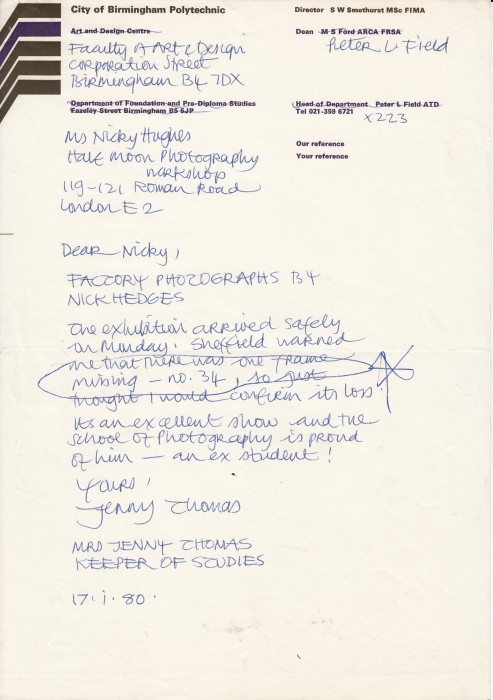 City of Birmingham Polytechnic
Director S W Smethurst MSc FIMA
Art and Design Centre
Dean M S Ford ARCA FRSA
Faculty of Art & Design
Peter L Field
Corporation Street
Birmingham B4 7DX
Department of Foundation and Pre-Diploma Studies
Fazeley Street Birmingham B5 5JP
Head of Department Peter L Field ATD
Tel 021-359 6721
X223
Our reference
Your reference
Ms Nicky Hughes
Half Moon Photography
Workshop
119-121 Roman Road
London E2
Dear Nicky,
FACTORY PHOTOGRAPHS BY
NICK HEDGES
The exhibition arrived safely
on Monday. Sheffield warned
me that there was one frame
missing - no. 34, so just
thought I would confirm its loss!
Its an excellent show and the
School of Photography is proud
of him - an ex student!
Yours,
Jenny Thomas
MRS JENNY THOMAS
KEEPER OF STUDIES
17.i.80.